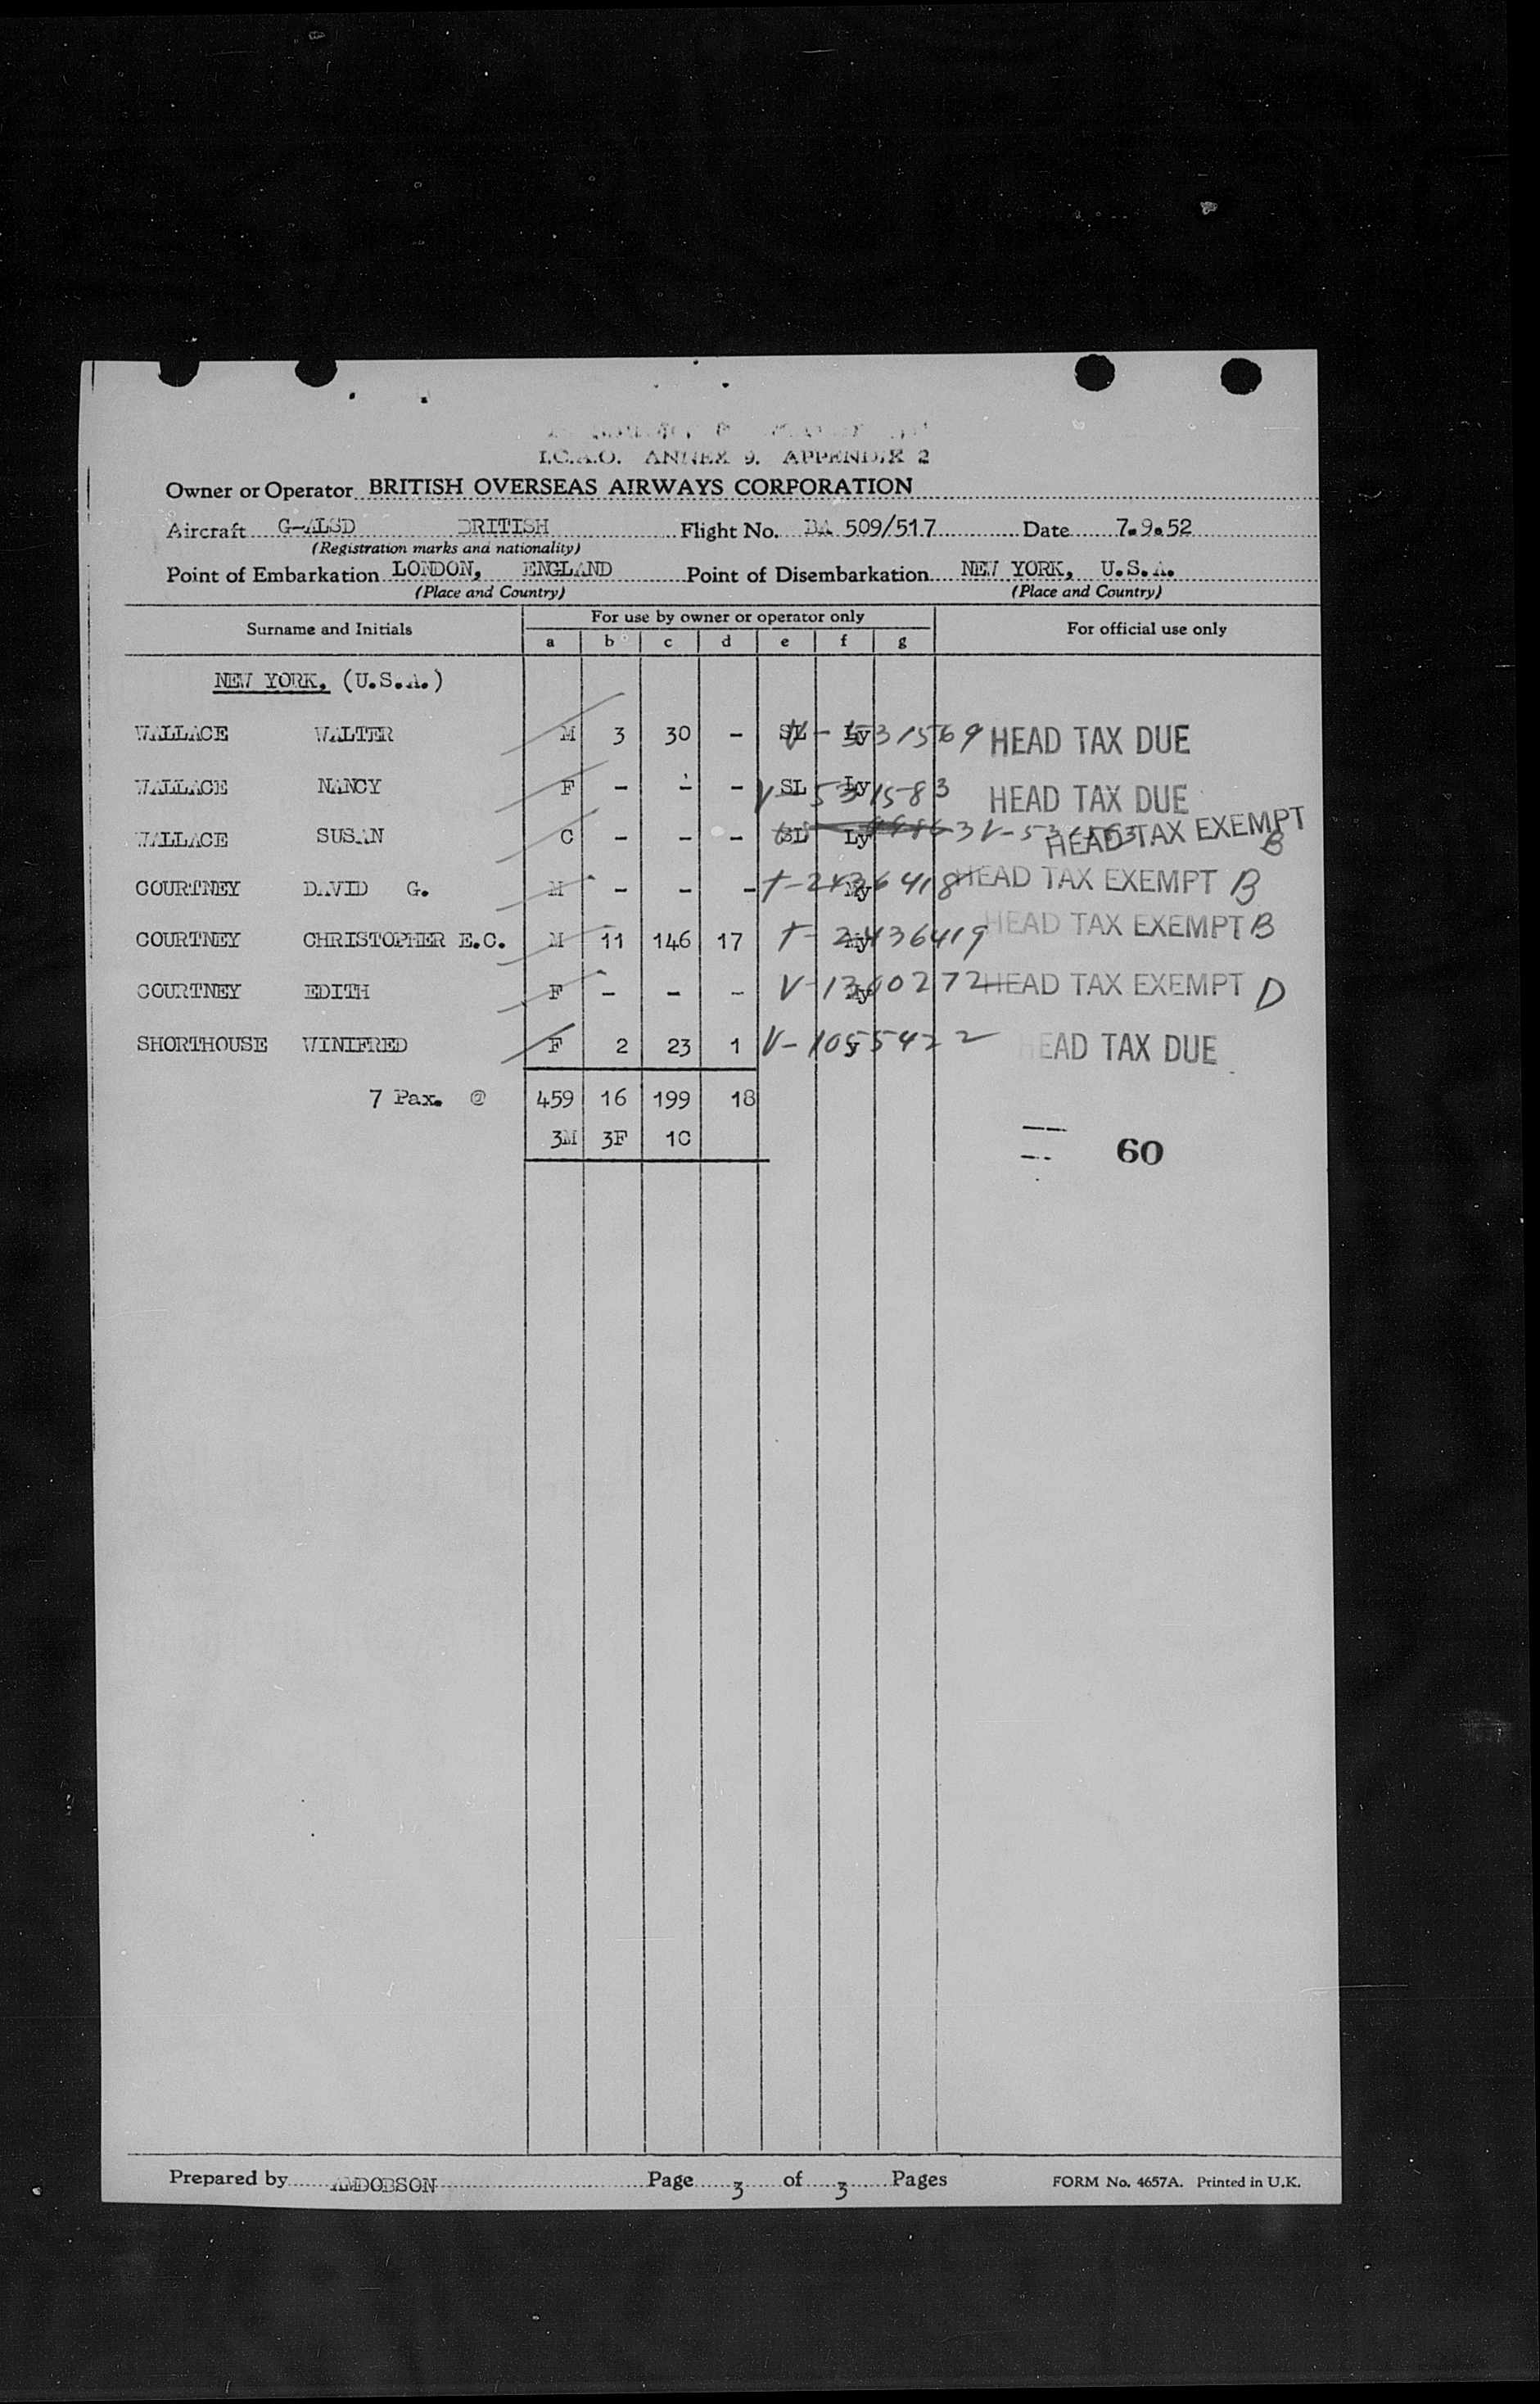 I.C.A.O. ANNEX 9. APPENDIX 2
Owner or Operator BRITISH OVERSEAS AIRWAYS CORPORATION
Aircraft G-ALSD BRITISH Flight No. BA 509/517 Date 7.9.52
(Registration marks and nationality)
Point of Embarkation LONDON, ENGLAND Point of Disembarkation NEW YORK, U.S.A.
(Place and Country) (Place and Country)
Surname and Initials For use by owner or operator only For official use only
a b c d e f g
NEW YORK. (U.S.A.)
WALLACE WALTER M 3 30 - SL Ly V-531569 HEAD TAX DUE
WALLACE NANCY F - - - SL Ly V-531583 HEAD TAX DUE
WALLACE SUSAN C - - - SL Ly HEAD TAX EXEMPT B
COURTNEY DAVID G. M - - - My T-2436418 HEAD TAX EXEMPT B
COURTNEY CHRISTOPHER E.C. M 11 146 17 My T-2436419 HEAD TAX EXEMPT B
COURTNEY EDITH F - - - V-1360272 HEAD TAX EXEMPT D
SHORTHOUSE WINIFRED F 2 23 1 V-1055422 HEAD TAX DUE
7 Pax. @ 459 16 199 18
3M 3F 1C
60
Prepared by AMDOBSON Page 3 of 3 Pages FORM No. 4657A. Printed in U.K.